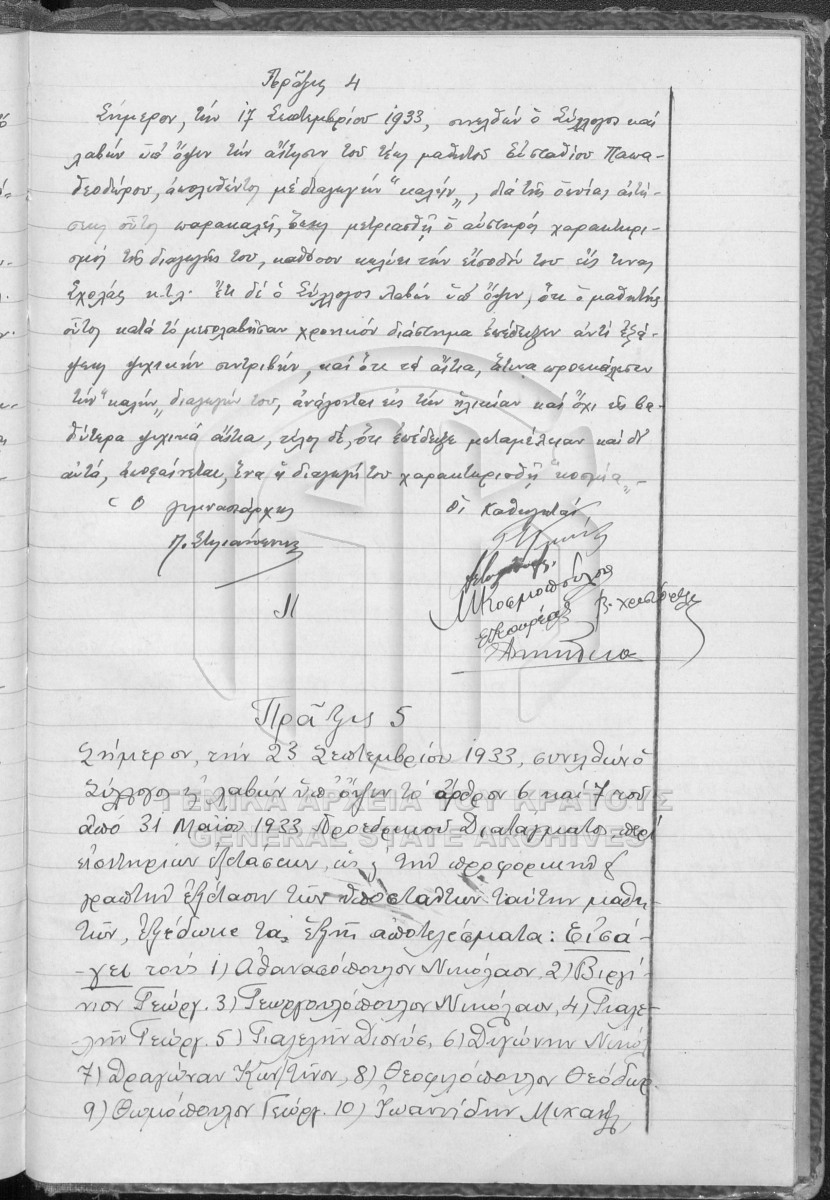 Πρᾶξις 4
Σήμερον, τὴν 17 Σεπτεμβρίου 1933, συνελθὼν ὁ Σύλλογος καὶ
λαβὼν ὑπ' ὄψιν τὴν αἴτησιν τοῦ τέως μαθητοῦ Εὐσταθίου Παπα-
θεοδώρου, ἀπολυθέντος μὲ διαγωγὴν "καλήν", διὰ τῆς ὁποίας αἰτή-
σεως οὗτος παρακαλεῖ, ὅπως μετριασθῇ ὁ αὐστηρὸς χαρακτηρι-
σμὸς τῆς διαγωγῆς του, καθόσον κωλύει τὴν εἴσοδόν του εἰς τινας
Σχολὰς κ.τ.λ. δὲ ὁ Σύλλογος λαβὼν ὑπ' ὄψιν, ὅτι ὁ μαθητὴς
οὗτος κατὰ τὸ μεσολαβῆσαν χρονικὸν διάστημα ἐπέδειξεν ἀντὶ ἐξά-
ψεως ψυχικὴν συντριβήν, καὶ ὅτι τὰ αἴτια, ἅτινα προεκάλεσαν
τὴν "καλὴν" διαγωγήν του, ἀνάγονται εἰς τὴν ἡλικίαν καὶ ὄχι εἰς βα-
θύτερα ψυχικὰ αἴτια, τέλος δέ, ὅτι ἐπέδειξε μεταμέλειαν καὶ δι'
αὐτό, ἀποφαίνεται, ἵνα ἡ διαγωγή του χαρακτηρισθῇ "κοσμία".-
Ὁ γυμνασιάρχης
Οἱ Καθηγηταί
Μ Κοσμοπούλου
Πρᾶξις 5
Σήμερον, τὴν 23 Σεπτεμβρίου 1933, συνελθὼν ὁ
Σύλλογος κ λαβὼν ὑπ' ὄψιν τὸ ἄρθρον 6 καὶ 7 τοῦ
ἀπὸ 31 Μαΐου 1933 Προεδρικοῦ Διατάγματος περὶ
εἰσιτηρίων ἐξετάσεων, τὴν προφορικὴν &
γραπτὴν ἐξέτασιν τῶν ὑποστάντων ταύτην μαθη-
τῶν, ἐξέδωκε τὰ ἑξῆς ἀποτελέσματα: Εἰσά-
-γει τοὺς 1) Ἀθανασόπουλον Νικόλαον 2) Βιργί-
νιον Γεώργ. 3) Γεωργουλόπουλον Νικόλαον, 4) Γιαλε-
-λῆν Γεώργ. 5) Γιαλελῆν Διονύσ, 6) Διγώνην Νικόλ
7) Δραγώναν Κων/τῖνον, 8) Θεοφιλόπουλον Θεόδωρ.
9) Θωμόπουλον Γεώργ. 10) Ἰωαννίδην Μιχαήλ,
ΓΕΝΙΚΑ ΑΡΧΕΙΑ ΤΟΥ ΚΡΑΤΟΥΣ
GENERAL STATE ARCHIVES